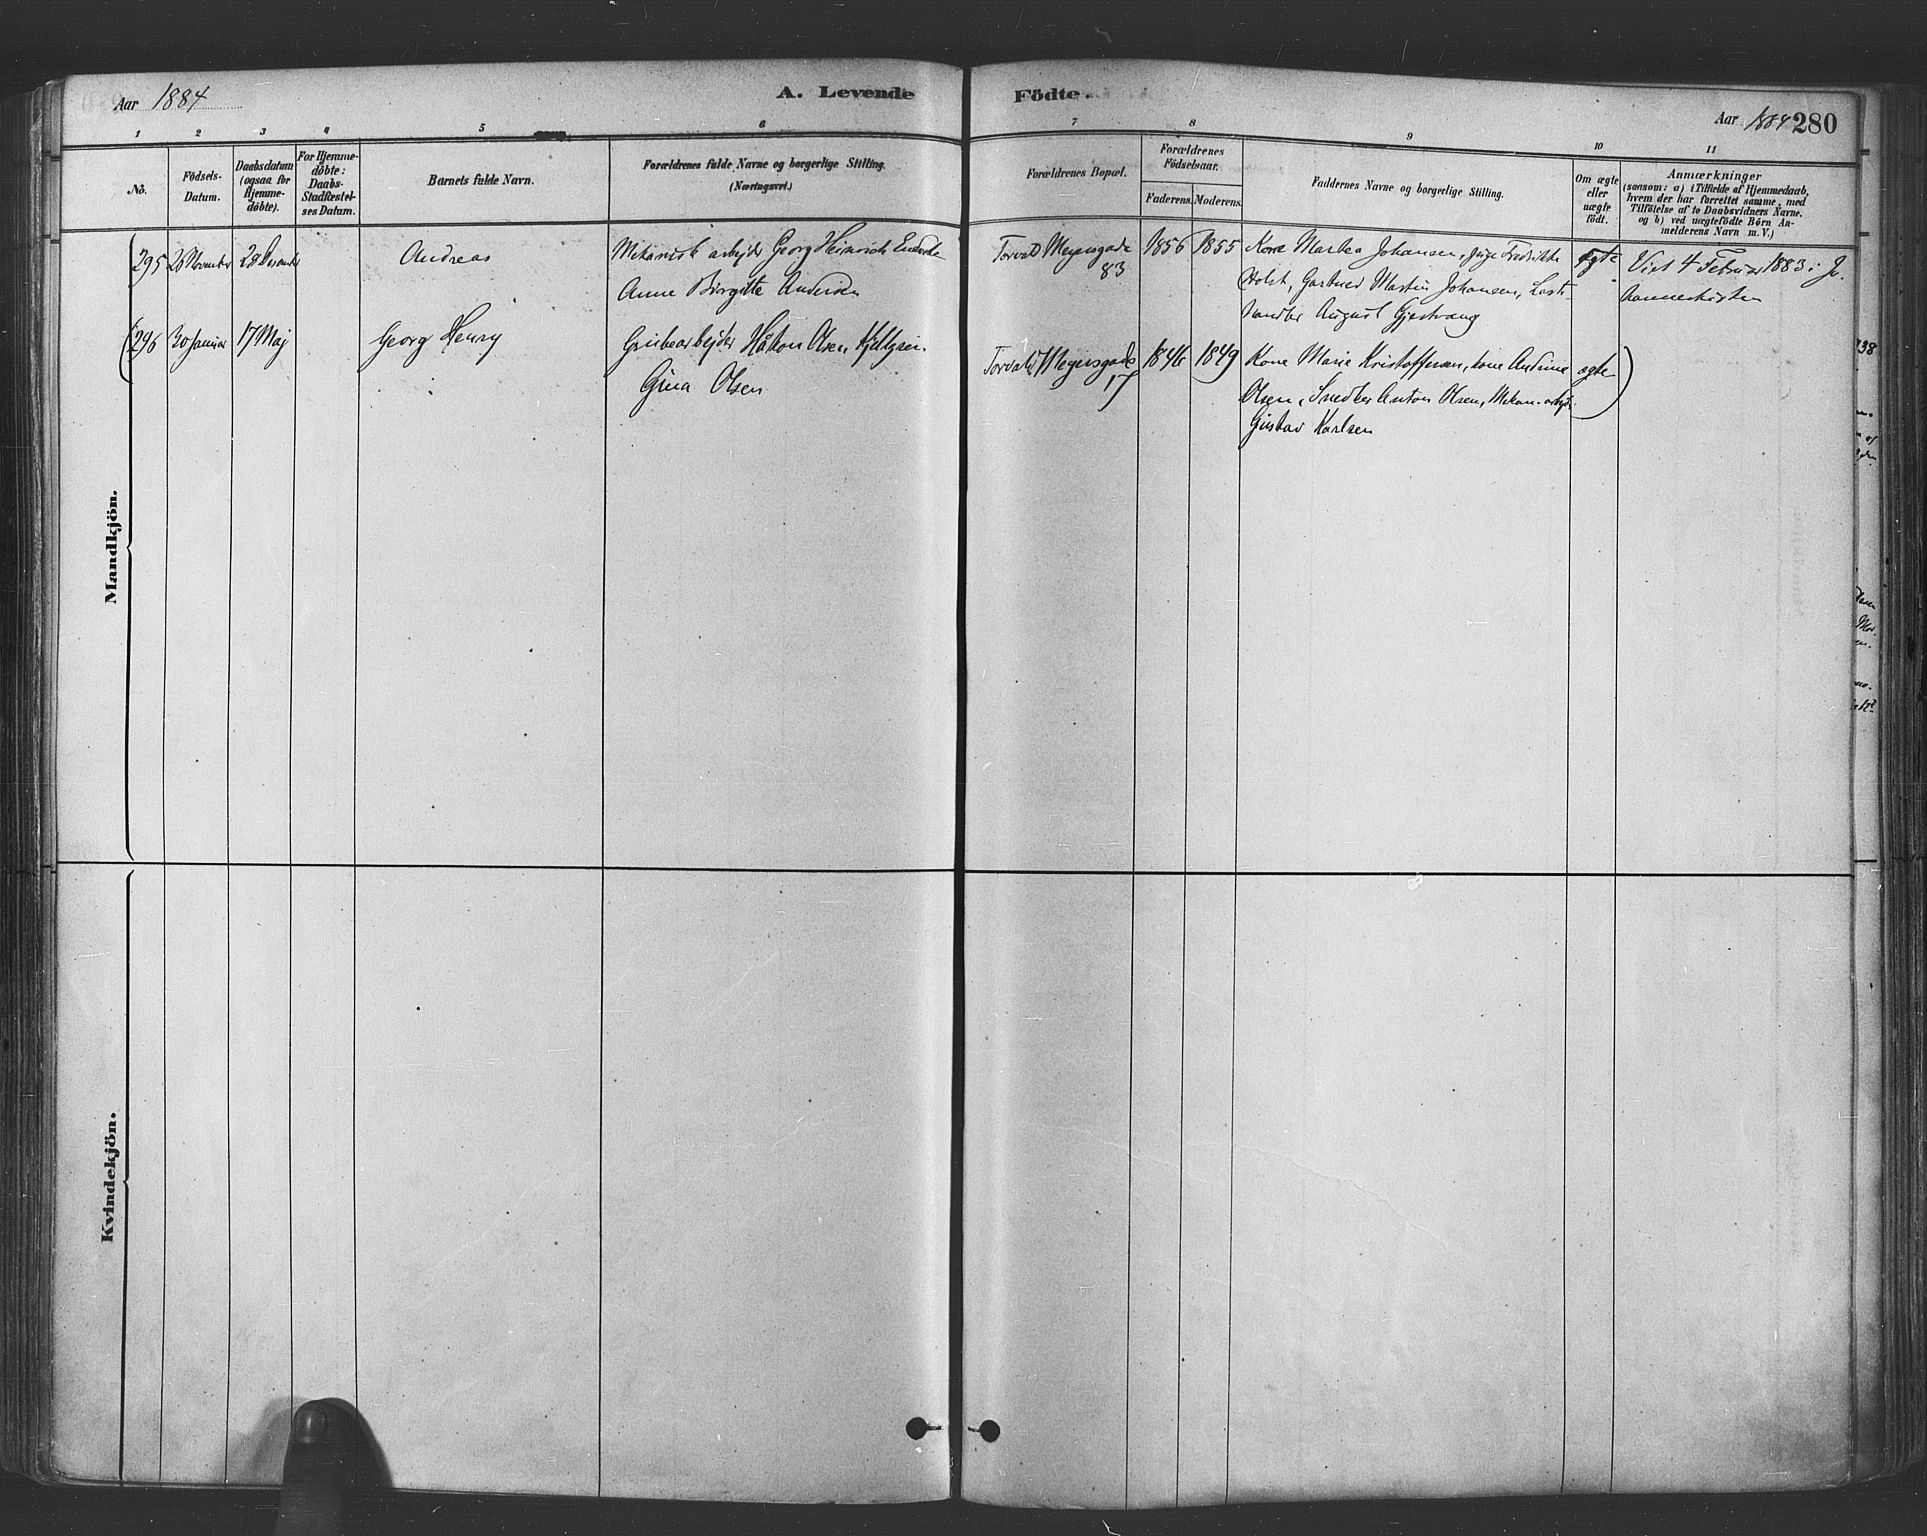 Aar 1884
A. Levende Födte.
Aar 1884 280
1 2 3 4 5 6 7 8 9 10 11
No.
Födsels-
Datum.
Daabsdatum
(ogsaa for
Hjemme-
döbte).
For Hjemme-
döbte:
Daabs-
Stadfæstel-
ses Datum.
Barnets fulde Navn.
Forældrenes fulde Navne og borgerlige Stilling.
(Næringsvei.)
Forældrenes Bopæl.
Forældrenes
Födselsaar.
Faderens. Moderens.
Faddernes Navne og borgerlige Stilling.
Om ægte
eller
uægte
födt.
Anmærkninger
(saasom: a) i Tilfælde af Hjemmedaab,
hvem der har forrettet samme, med
Tilföielse af to Daabsvidners Navne.
og b) ved uægtefödte Börn An-
melderens Navn m. V.)
Mandkjön.
295 26 November 28 Desember Andreas Mekanisk arbejder Georg Heinrich
Anne Birgitte Andersen
Torvald Meyersgade
83
1856 1855
Kone Marthea Johansen, Pige Fredrikke
Holst, Gartner Martin Johansen, Last-
handler August Gjestvang
ægte
Viet 4 Februar 1883 i Jo-
hanneskirken
(296 30 Januar 17 Maj Georg Henry Grubearbejder Håkon Olsen
Gina Olsen
Torvald Meyersgade
17
1846 1849
Kone Marie Kristoffersen, kone Andrine
Olsen, Snedker Anton Olsen, Mekan. arbejd.
Gustav Karlsen
ægte )
Kvindekjön.